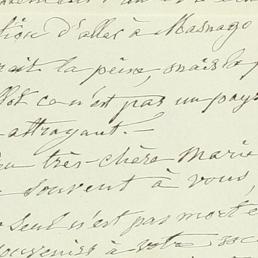 tion d'aller à Masnago
rait la peine, mais le p
ce n'est pas un pays
attrayant. —
très-chère Marie
souvent à vous,
seul n'est pas morte
souvenirs à votre